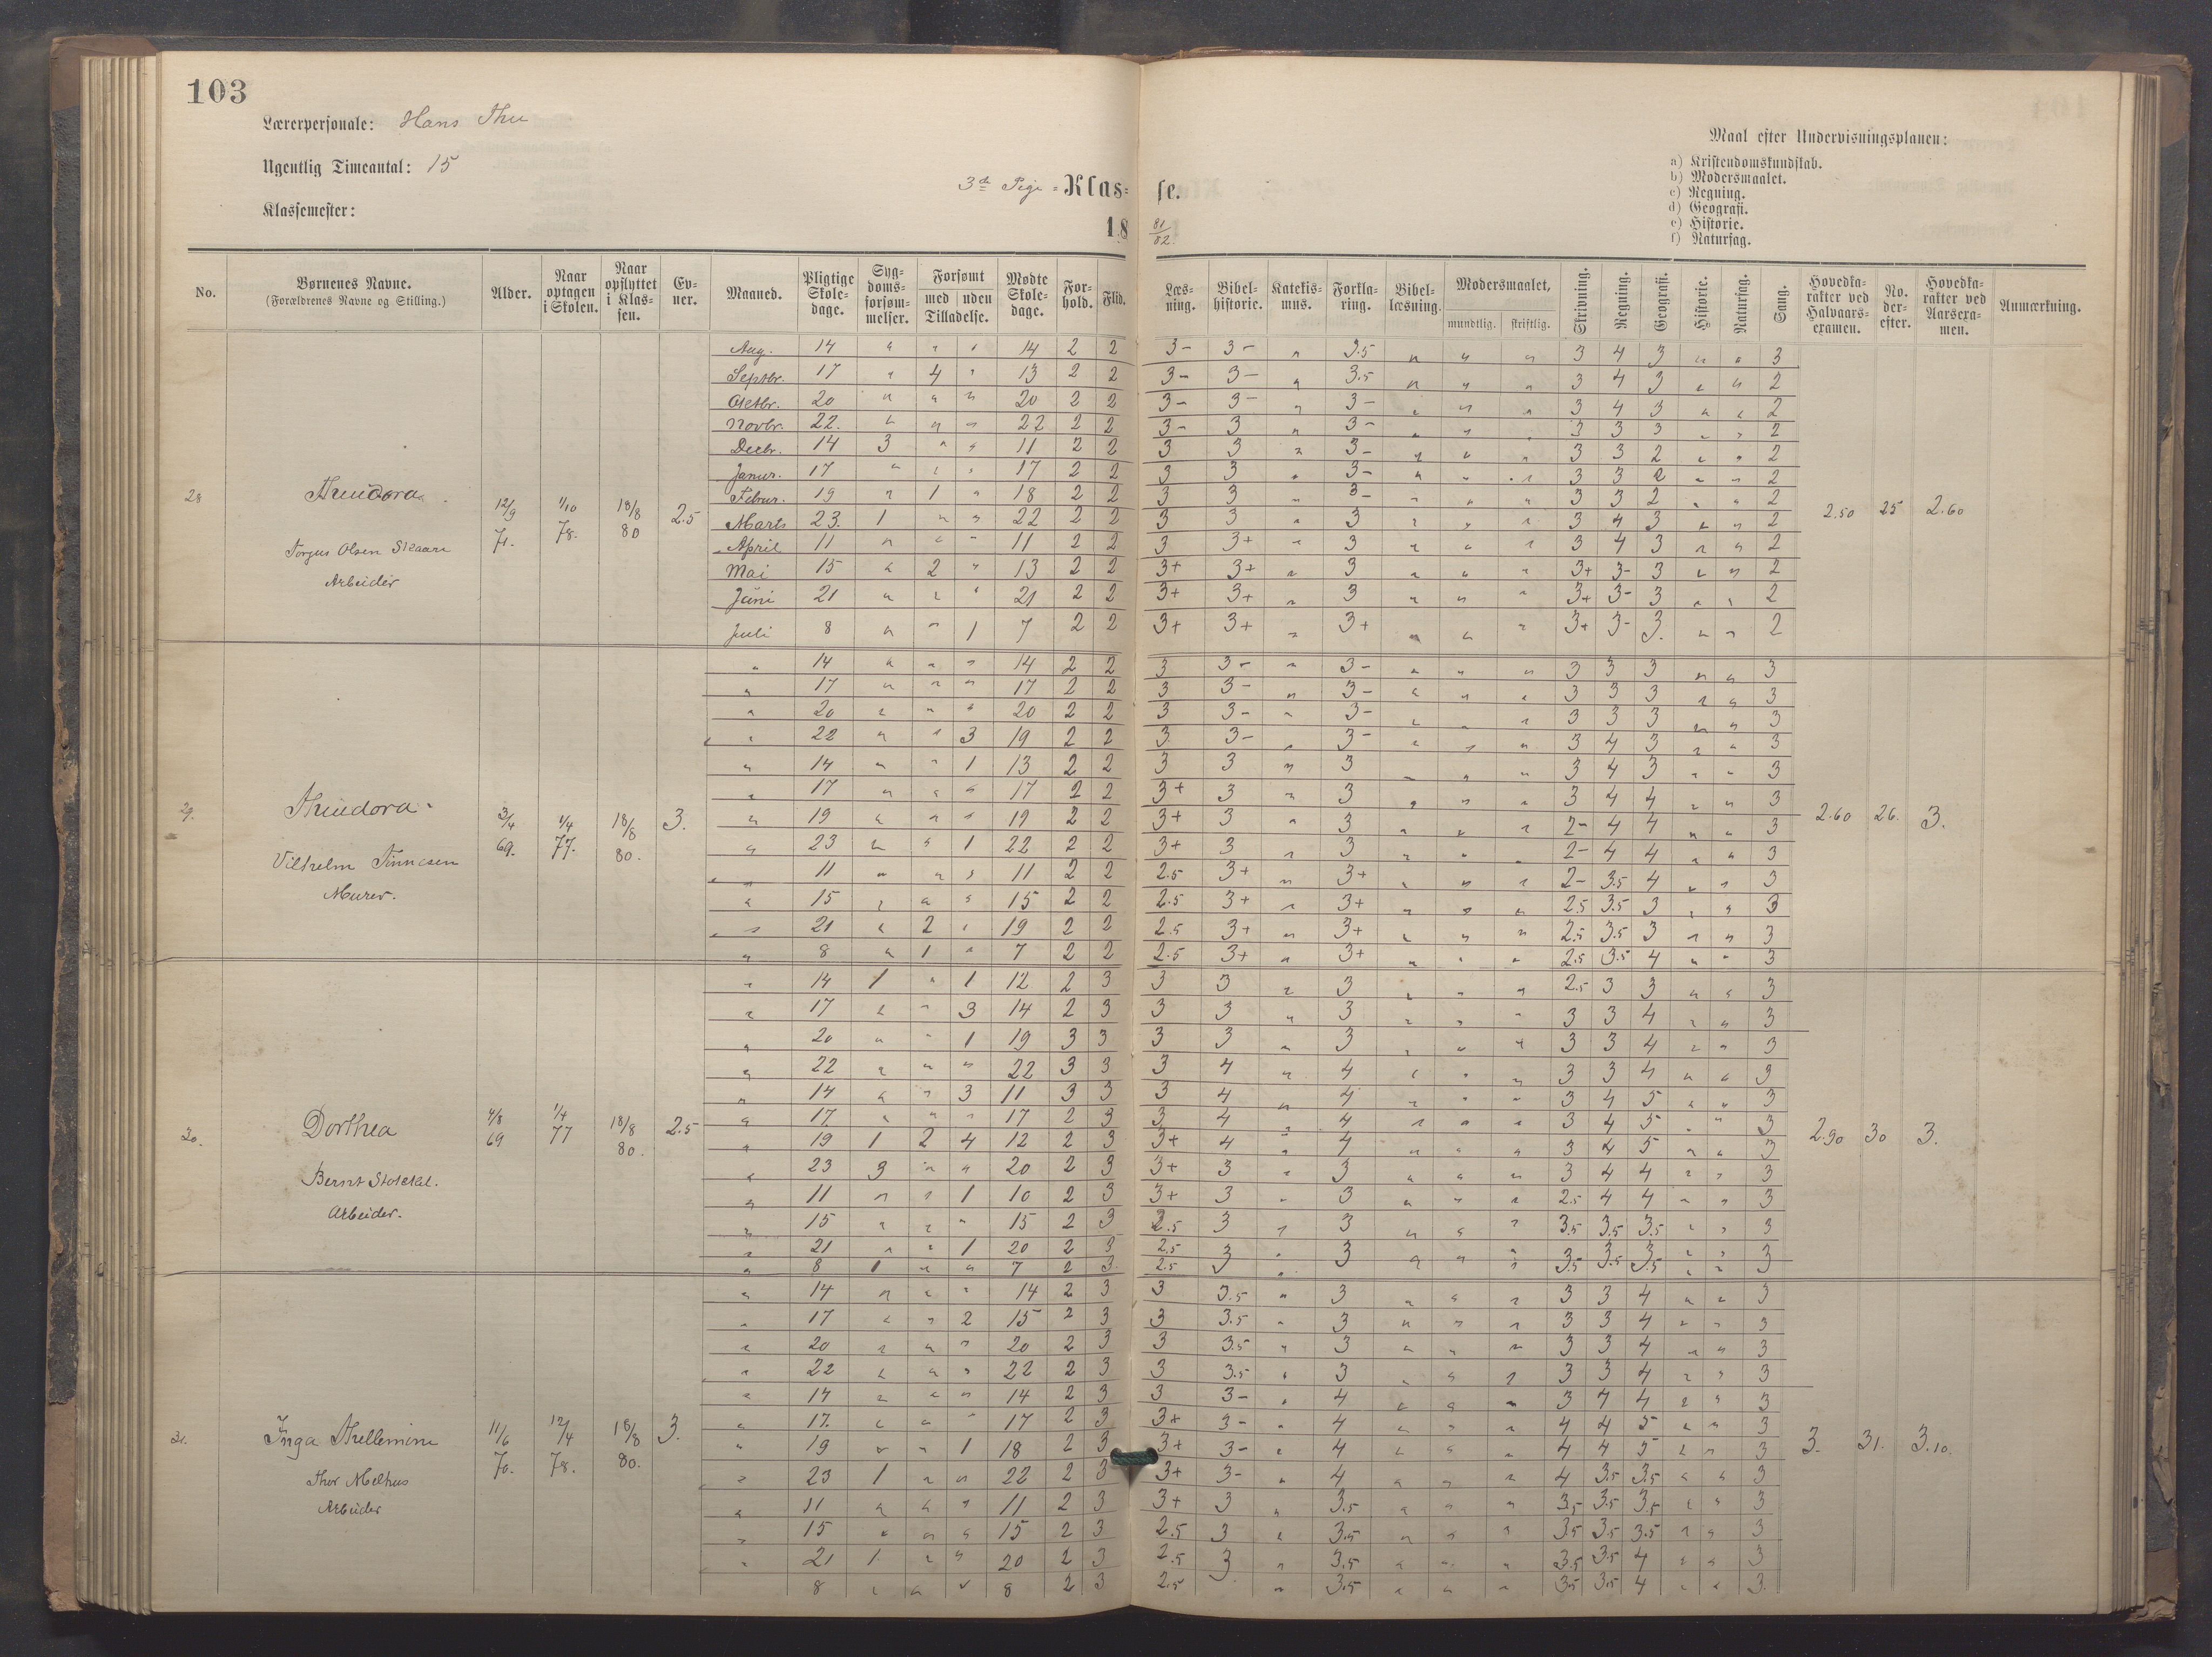 103
Lærerpersonale: Hans Thu
Ugentlig Timeantal: 15
Klassemester:
3die Pige-Klasse.
18 81/82.
Maal efter Undervisningsplanen:
a) Kristendomskundskab.
b) Modersmaalet.
c) Regning.
d) Geografi.
e) Historie.
f) Naturfag.
No. | Børnenes Navne. (Forældrenes Navne og Stilling.) | Alder. | Naar optagen i Skolen. | Naar opflyttet i Klassen. | Evner. | Maaned. | Pligtige Skoledage. | Sygdomsforsømmelser. | Forsømt med Tilladelse. | uden | Mødte Skoledage. | Forhold. | Flid. | Læsning. | Bibelhistorie. | Katekismus. | Forklaring. | Bibellæsning. | Modersmaalet, mundtlig. | skriftlig. | Skrivning. | Regning. | Geografi. | Historie. | Naturfag. | Sang. | Hovedkarakter ved Halvaarsexamen. | No. derefter. | Hovedkarakter ved Aarsexamen. | Anmærkning.
28 Theodora Torgus Olsen Skaare Arbeider 12/9 71. 1/10 78. 18/8 80 2.5 2.50 25 2.60
Aug. 14 " " " 14 2 2 3- 3- " 3.5 " " " 3 4 3 " " 3
Septbr. 17 " 4 " 13 2 2 3- 3- " 3.5 " " " 3 4 3 " " 2
Oktbr. 20 " " " 20 2 2 3- 3- " 3- " " " 3 4 3 " " 2
Novbr. 22. " " " 22 2 2 3- 3 " 3- " " " 3 3 3 " " 2
Decbr. 14 3 " " 11 2 2 3 3 " 3- " " " 3 3 2 " " 2
Janur. 17 " " " 17 2 2 3 3 " 3- " " " 3 3 2 " " 2
Februr. 19 " 1 " 18 2 2 3 3 " 3- " " " 3 3 2 " " 2
Marts 23. 1 " " 22 2 2 3 3 " 3 " " " 3 4 3 " " 2
April 11 " " " 11 2 2 3 3+ " 3 " " " 3 4 3 " " 2
Mai 15 " 2 " 13 2 2 3+ 3+ " 3 " " " 3+ 3- 3 " " 2
Juni 21 " " " 21 2 2 3+ 3+ " 3 " " " 3+ 3- 3 " " 2
Juli 8 " " 1 7 2 2 3+ 3+ " 3+ " " " 3+ 3- 3. " " 2
29. Theodora Vilhelm Tønnesen Murer. 3/4 69. 1/4 77. 18/8 80. 3. 2.60 26. 3.
" 14 " " " 14 2 2 3 3- " 3- " " " 3 3 3 " " 3
" 17 " " " 17 2 2 3 3- " 3- " " " 3 3 3 " " 3
" 20 " " " 20 2 2 3 3- " 3- " " " 3 3 3 " " 3
" 22 " " 3 19 2 2 3. 3- " 3- " " " 3 4 3 " " 3
" 14 " " 1 13 2 2 3 3 " 3 " " " 3 4 3 " " 3
" 17 " " " 17 2 2 3+ 3 " 3 " " " 3 4 4 " " 3
" 19 " " " 19 2 2 3+ 3 " 3 " " " 2- 4 4 " " 3
" 23 " " 1 22 2 2 3+ 3 " 3 " " " 2- 4 4 " " 3
" 11 " " " 11 2 2 2.5 3+ " 3+ " " " 2- 3.5 4 " " 3
" 15 " " " 15 2 2 2.5 3+ " 3+ " " " 2.5 3.5 3 " " 3
" 21 " 2 " 19 2 2 2.5 3+ " 3+ " " " 2.5 3.5 3 " " 3
" 8 " 1 " 7 2 2 2.5 3+ " 3+ " " " 2.5 3.5 4 " " 3
30. Dorthea Bernt Arbeider. 4/8 69 1/4 77 18/8 80. 2.5 2.90 30 3.
" 14 1 " 1 12 2 3 3 3 " 3 " " " 2.5 3 3 " " 3
" 17 " " 3 14 2 3 3 3 " 3 " " " 3 3 4 " " 3
" 20 " " 1 19 3 3 3 3 " 3 " " " 3 3 4 " " 3
" 22 " " " 22 3 3 3 4 " 4 " " " 3 3 4 " " 3
" 14 " " 3 11 3 3 3 4 " 4 " " " 3 4 5 " " 3
" 17. " " " 17 2 3 3 4 " 4 " " " 3 4 5 " " 3
" 19 1 2 4 12 2 3 3+ 4 " 4 " " " 3 4 5 " " 3
" 23 3 " " 20 2 3 3+ 3 " 3 " " " 3 4 4 " " 3
" 11 " " 1 10 2 3 3+ 3 " 3 " " " 2.5 4 4 " " 3
" 15 " " " 15 2 3 2.5 3 " 3 " " " 3.5 3.5 3.5 " " 3
" 21 " " 1 20 2 3 2.5 3 " 3 " " " 3.5 3.5 3.5 " " 3
" 8 1 " " 7 2 3. 2.5
31. Inga Thellemine Thor Melhus Arbeider 11/6 70. 12/4 78. 18/8 80. 3. 3. 31. 3.10.
" 14 " " " 14 2 3 3 3.5 " 3 " " " 3 3 4 " " 3
" 17 " " 2 15 2 3 3 3.5 " 3 " " " 3 3 4 " " 3
" 20 " " " 20 2 3 3 3.5 " 3 " " " 3 3 4 " " 3
" 22 " " " 22 2 3 3 3.5 " 3 " " " 3 3 4 " " 3
" 14 " " " 14 2 3 3 3- " 4 " " " 3 4 4 " " 3
" 17. " " " 17 2 3 3+ 3- " 4 " " " 4 4 5 " " 3
" 19 " " 1 18 2 3 3+ 3- " 4 " " " 4 4 5 " " 3
" 23 1 " " 22 2 3 3+ 3- " 4 " " " 4 3.5 3.5 " " 3
" 11 " " " 11 2 3 3+ 3 " 3.5 " " " 3.5 3.5 3.5 " " 3
" 15 " " " 15 2 3 2.5 3 " 3.5 " " " 3.5 3.5 3.5 " " 3
" 21 1 " " 20 2 3 2.5 3 " 3.5 " " " 3.5 3.5 4 " " 3
8 " " " 8 2 3 2.5 " 3.5 " " " 3.5 3.5 4 " " 3.